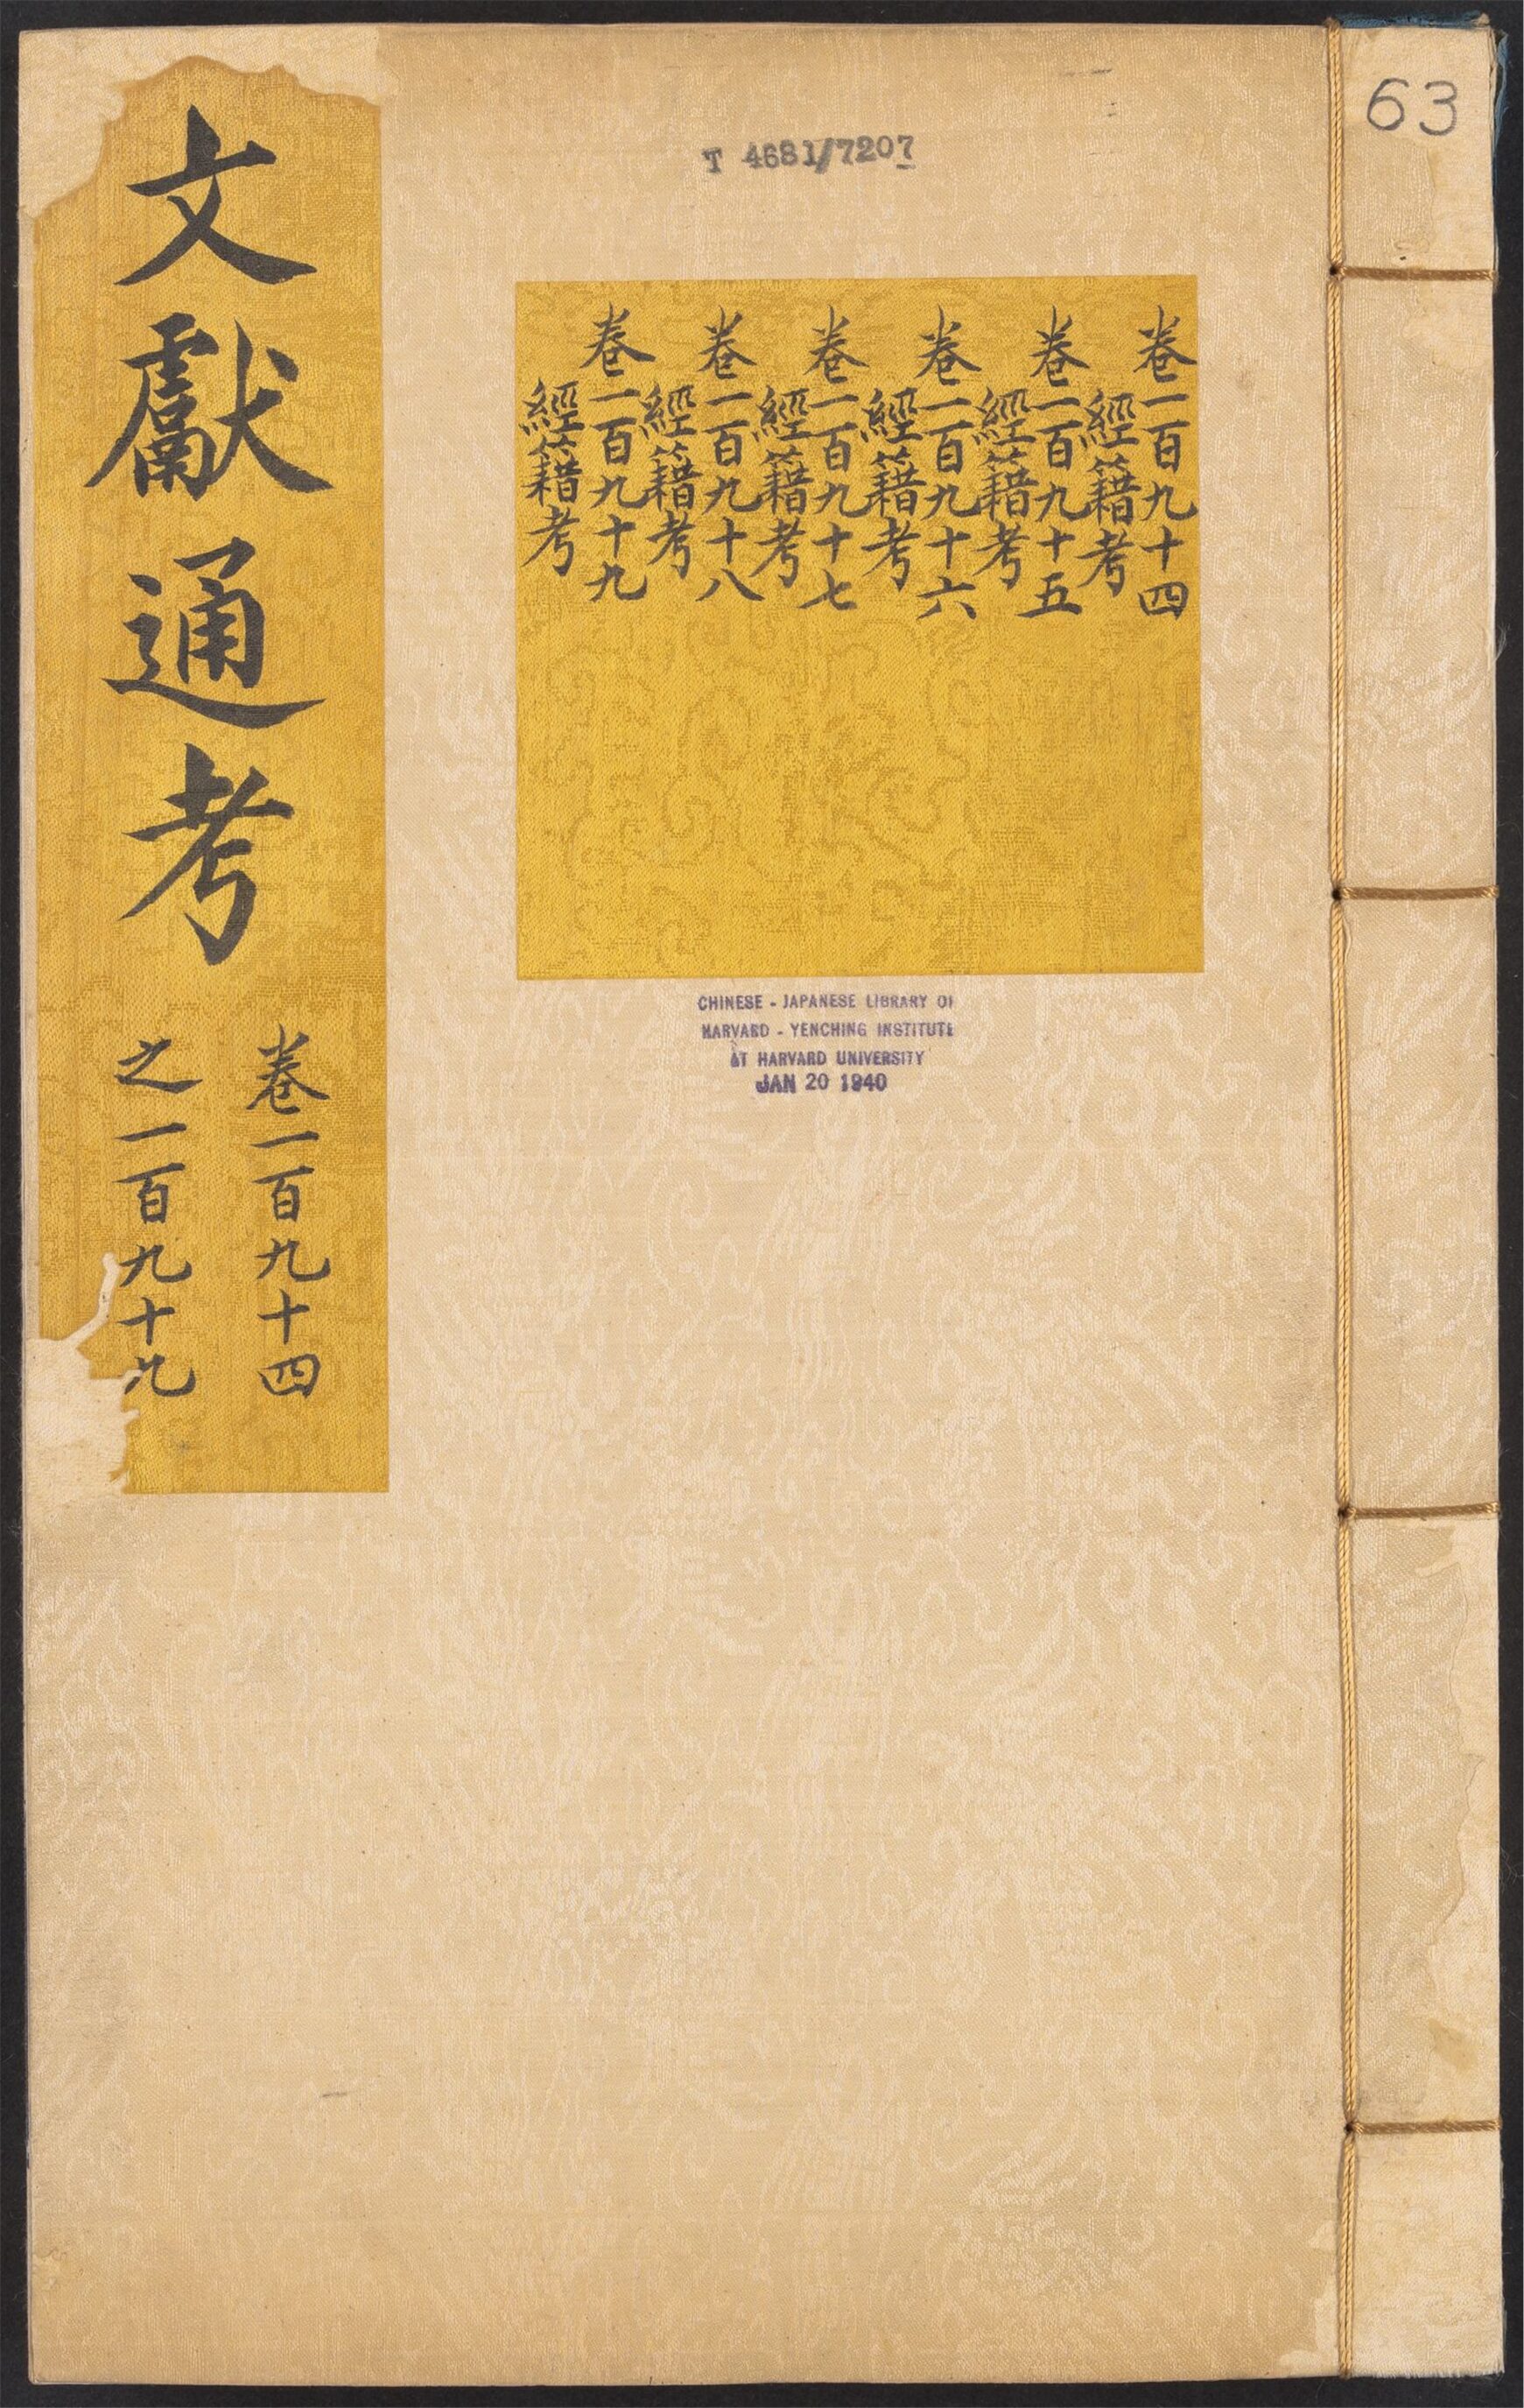 文獻通考
卷一百九十四
之一百九十九
T 4681/7207
63
卷一百九十四
經籍考
卷一百九十五
經籍考
卷一百九十六
經籍考
卷一百九十七
經籍考
卷一百九十八
經籍考
卷一百九十九
經籍考
CHINESE - JAPANESE LIBRARY OF
HARVARD - YENCHING INSTITUTE
AT HARVARD UNIVERSITY
JAN 20 1940